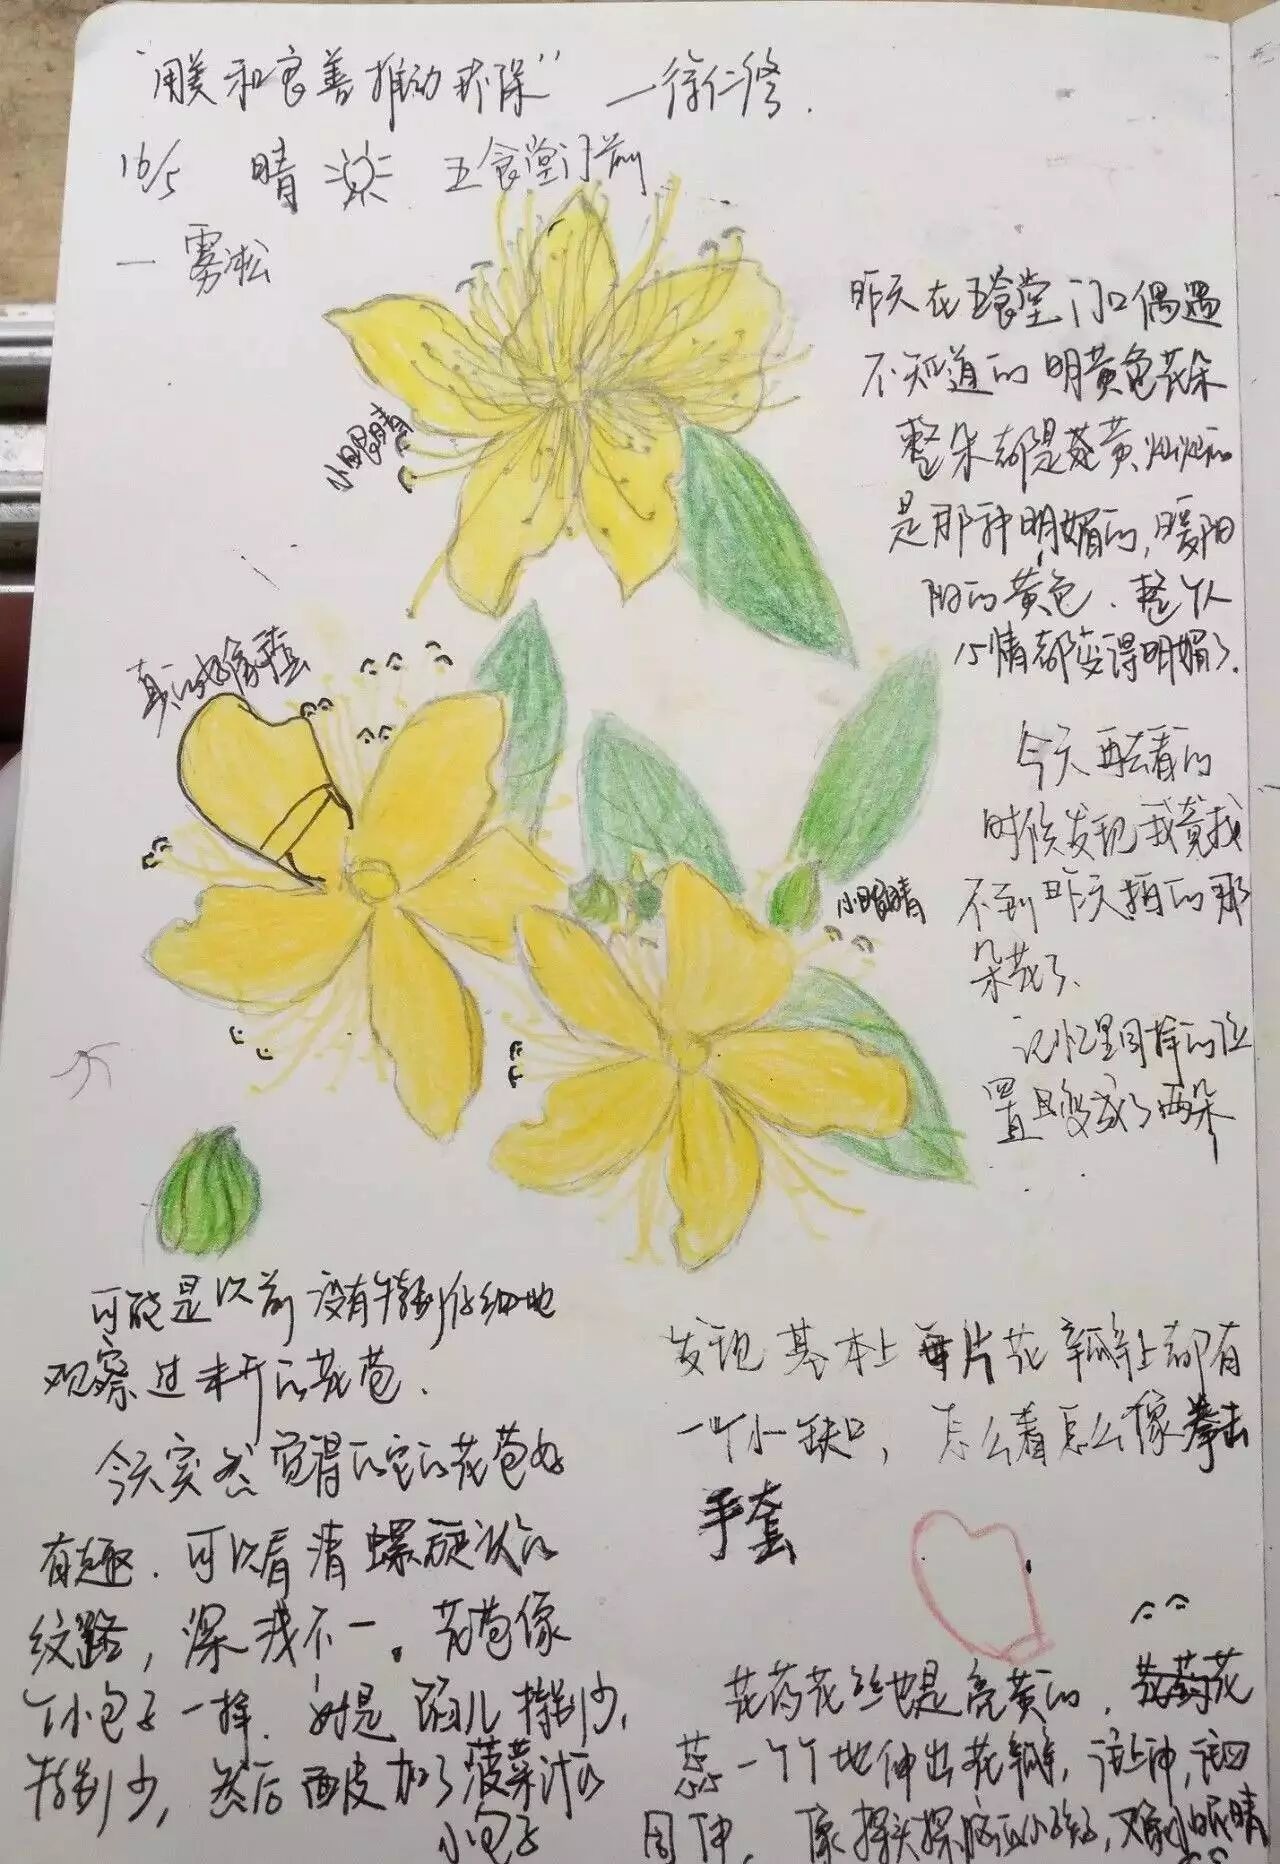 “用美和良善推动环保” —徐仁修.
16/5 晴 五食堂门前
— 雾凇
昨天在五食堂门口偶遇
不知道的明黄色花朵
整朵都是黄灿灿的
是那种明媚的,暖阳
阳的黄色.整个人
心情都变得明媚了.
小眼睛
真的好像拳套
今天再去看的
时候发现我竟找
不到昨天拍的那
朵花了.
小眼睛
记忆里同样的位
置且变成了两朵
可能是以前没有特别仔细地
观察过未开的花苞.
今天突然觉得它的花苞好
有趣.可以看清螺旋状的
纹路,深浅不一.花苞像
个小包子一样.就是馅儿特别少,
特别少,然后面皮加了菠菜汁的
小包子
发现基本上每片花瓣上都有
一个小缺口,怎么看怎么像拳击
手套
花药花丝也是亮黄的.花
蕊一个个地伸出花瓣,
周伸.像探头探脑的小孩子,又像小眼睛